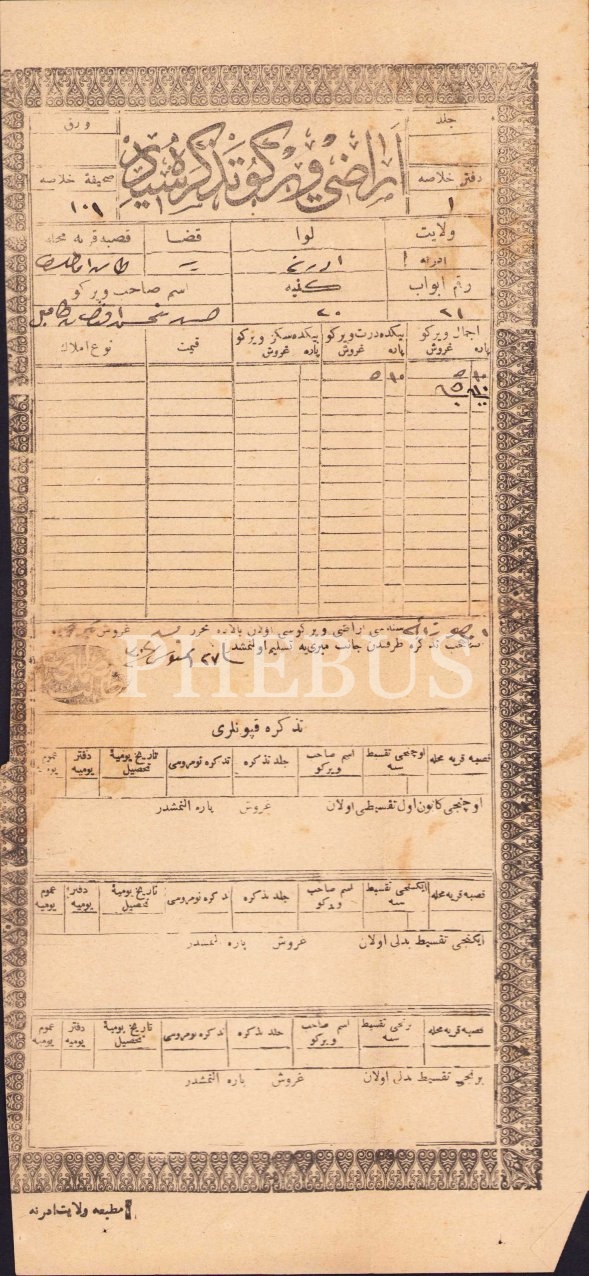 جلد
ورق
اراضی ویركو تذكره سیدر
دفتر خلاصه
صحیفۀ خلاصه
١
١٠١
ولایت
لوا
قضا
قصبه قریه محله
ادرنه
ادرنه
رقم ابواب
اسم صاحب ویركو
٢١
٢٠
اجمال ویركو
بیكده درت ویركو
بیكده سكز ویركو
قیمت
نوع املاك
پاره غروش
پاره غروش
پاره غروش
١٠ ٥
١٠ ٥
سنه سی اراضی ویركوسی اولان بالاده محرر غروش
صاحب تذكره طرفندن جانب میری یه تسلیم اولنمشدر
٢٧
PHEBUS
تذكره قپونلری
قصبه قریه محله
اوچنجی تقسیط سنه
اسم صاحب ویركو
جلد تذكره
تذكره نومروسی
تاریخ یومیۀ تحصیل
دفتر یومیه
عموم یومیه
اوچنجی كانون اول تقسیطی اولان غروش پاره النمشدر
قصبه قریه محله
ایكنجی تقسیط سنه
اسم صاحب ویركو
جلد تذكره
تذكره نومروسی
تاریخ یومیۀ تحصیل
دفتر یومیه
عموم یومیه
ایكنجی تقسیط بدلی اولان غروش پاره النمشدر
قصبه قریه محله
برنجی تقسیط سنه
اسم صاحب ویركو
جلد تذكره
تذكره نومروسی
تاریخ یومیۀ تحصیل
دفتر یومیه
عموم یومیه
برنجی تقسیط بدلی اولان غروش پاره النمشدر
مطبعه ولایت ادرنه